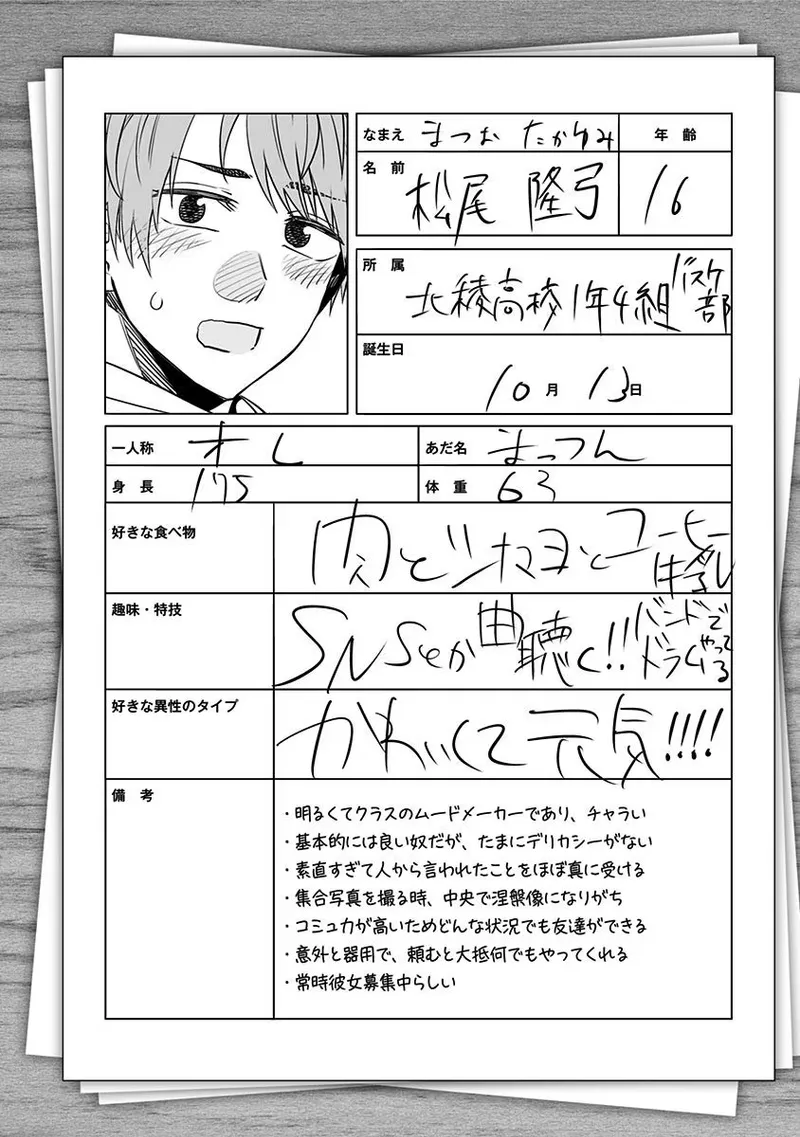 なまえ まつお たかゆみ
年齢
名前 松尾 隆弓
16
所属 北稜高校1年4組 バスケ部
誕生日
10月13日
一人称 オレ
あだ名 まっつん
身長 175
体重 63
好きな食べ物 肉とツナマヨとコーヒー牛乳
趣味・特技 SNSとか曲聴く!!バンドでドラムやってる
好きな異性のタイプ かわいくて元気!!!!
備考
・明るくてクラスのムードメーカーであり、チャラい
・基本的には良い奴だが、たまにデリカシーがない
・素直すぎて人から言われたことをほぼ真に受ける
・集合写真を撮る時、中央で涅槃像になりがち
・コミュ力が高いためどんな状況でも友達ができる
・意外と器用で、頼むと大抵何でもやってくれる
・常時彼女募集中らしい